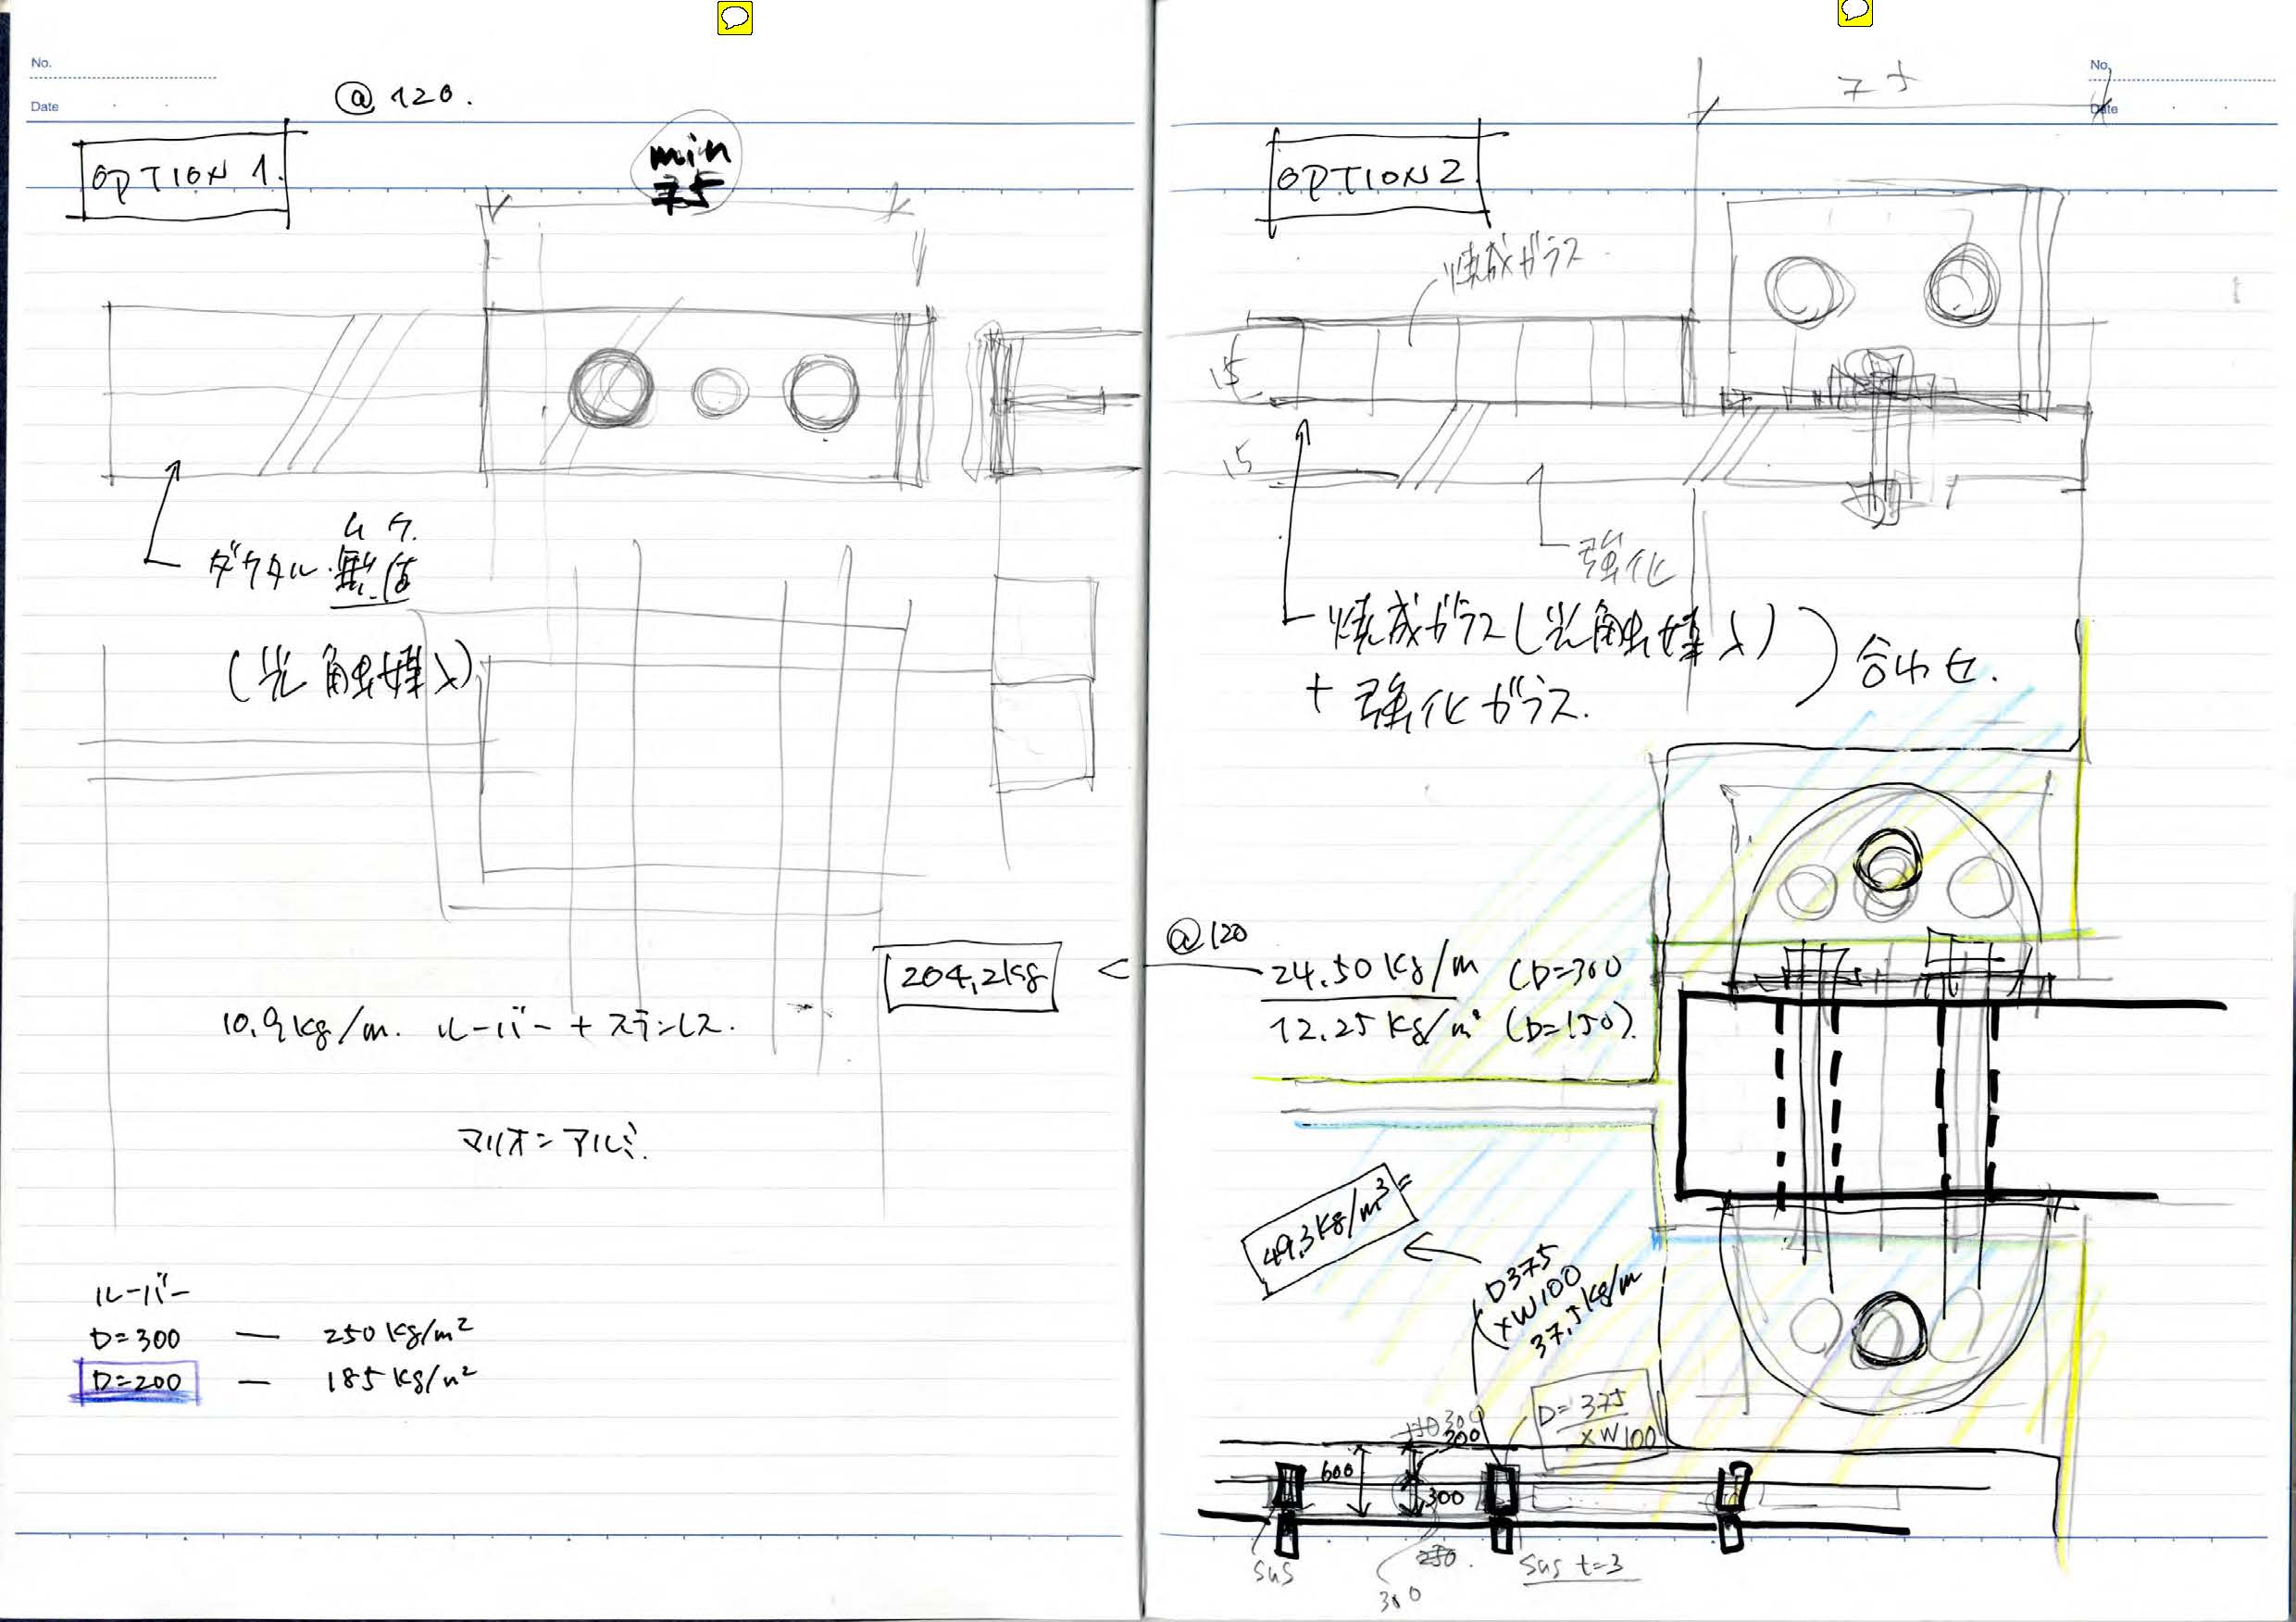 No.
Date
@ 120.
OPTION 1.
min
75
ムク.
ダクタル・無垢
(光触媒入)
204,2kg
10.9kg/m. ルーバー + ステンレス.
マリオン アルミ.
ルーバー
D=300 — 250 kg/m²
D=200 — 185 kg/m²
No.
Date
75
OPTION 2
焼成ガラス
15
15
強化
焼成ガラス(光触媒入)
+ 強化ガラス.
合わせ.
@120
24.50 kg/m (D=300
12.25 kg/m² (D=150).
49,3kg/m³ =
D375
×W100
37,5kg/m
D=375
×W100
300
300
600
300
250.
300
sus
sus t=3